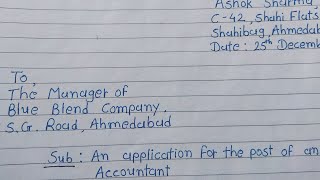 Ashok Sharma,
C-42, Shahi Flats
Shahibug, Ahmedab
Date : 25th Decem
To,
The Manager of
Blue Blend Company.
S.G. Road, Ahmedabad
Sub : An application for the post of an
Accountant